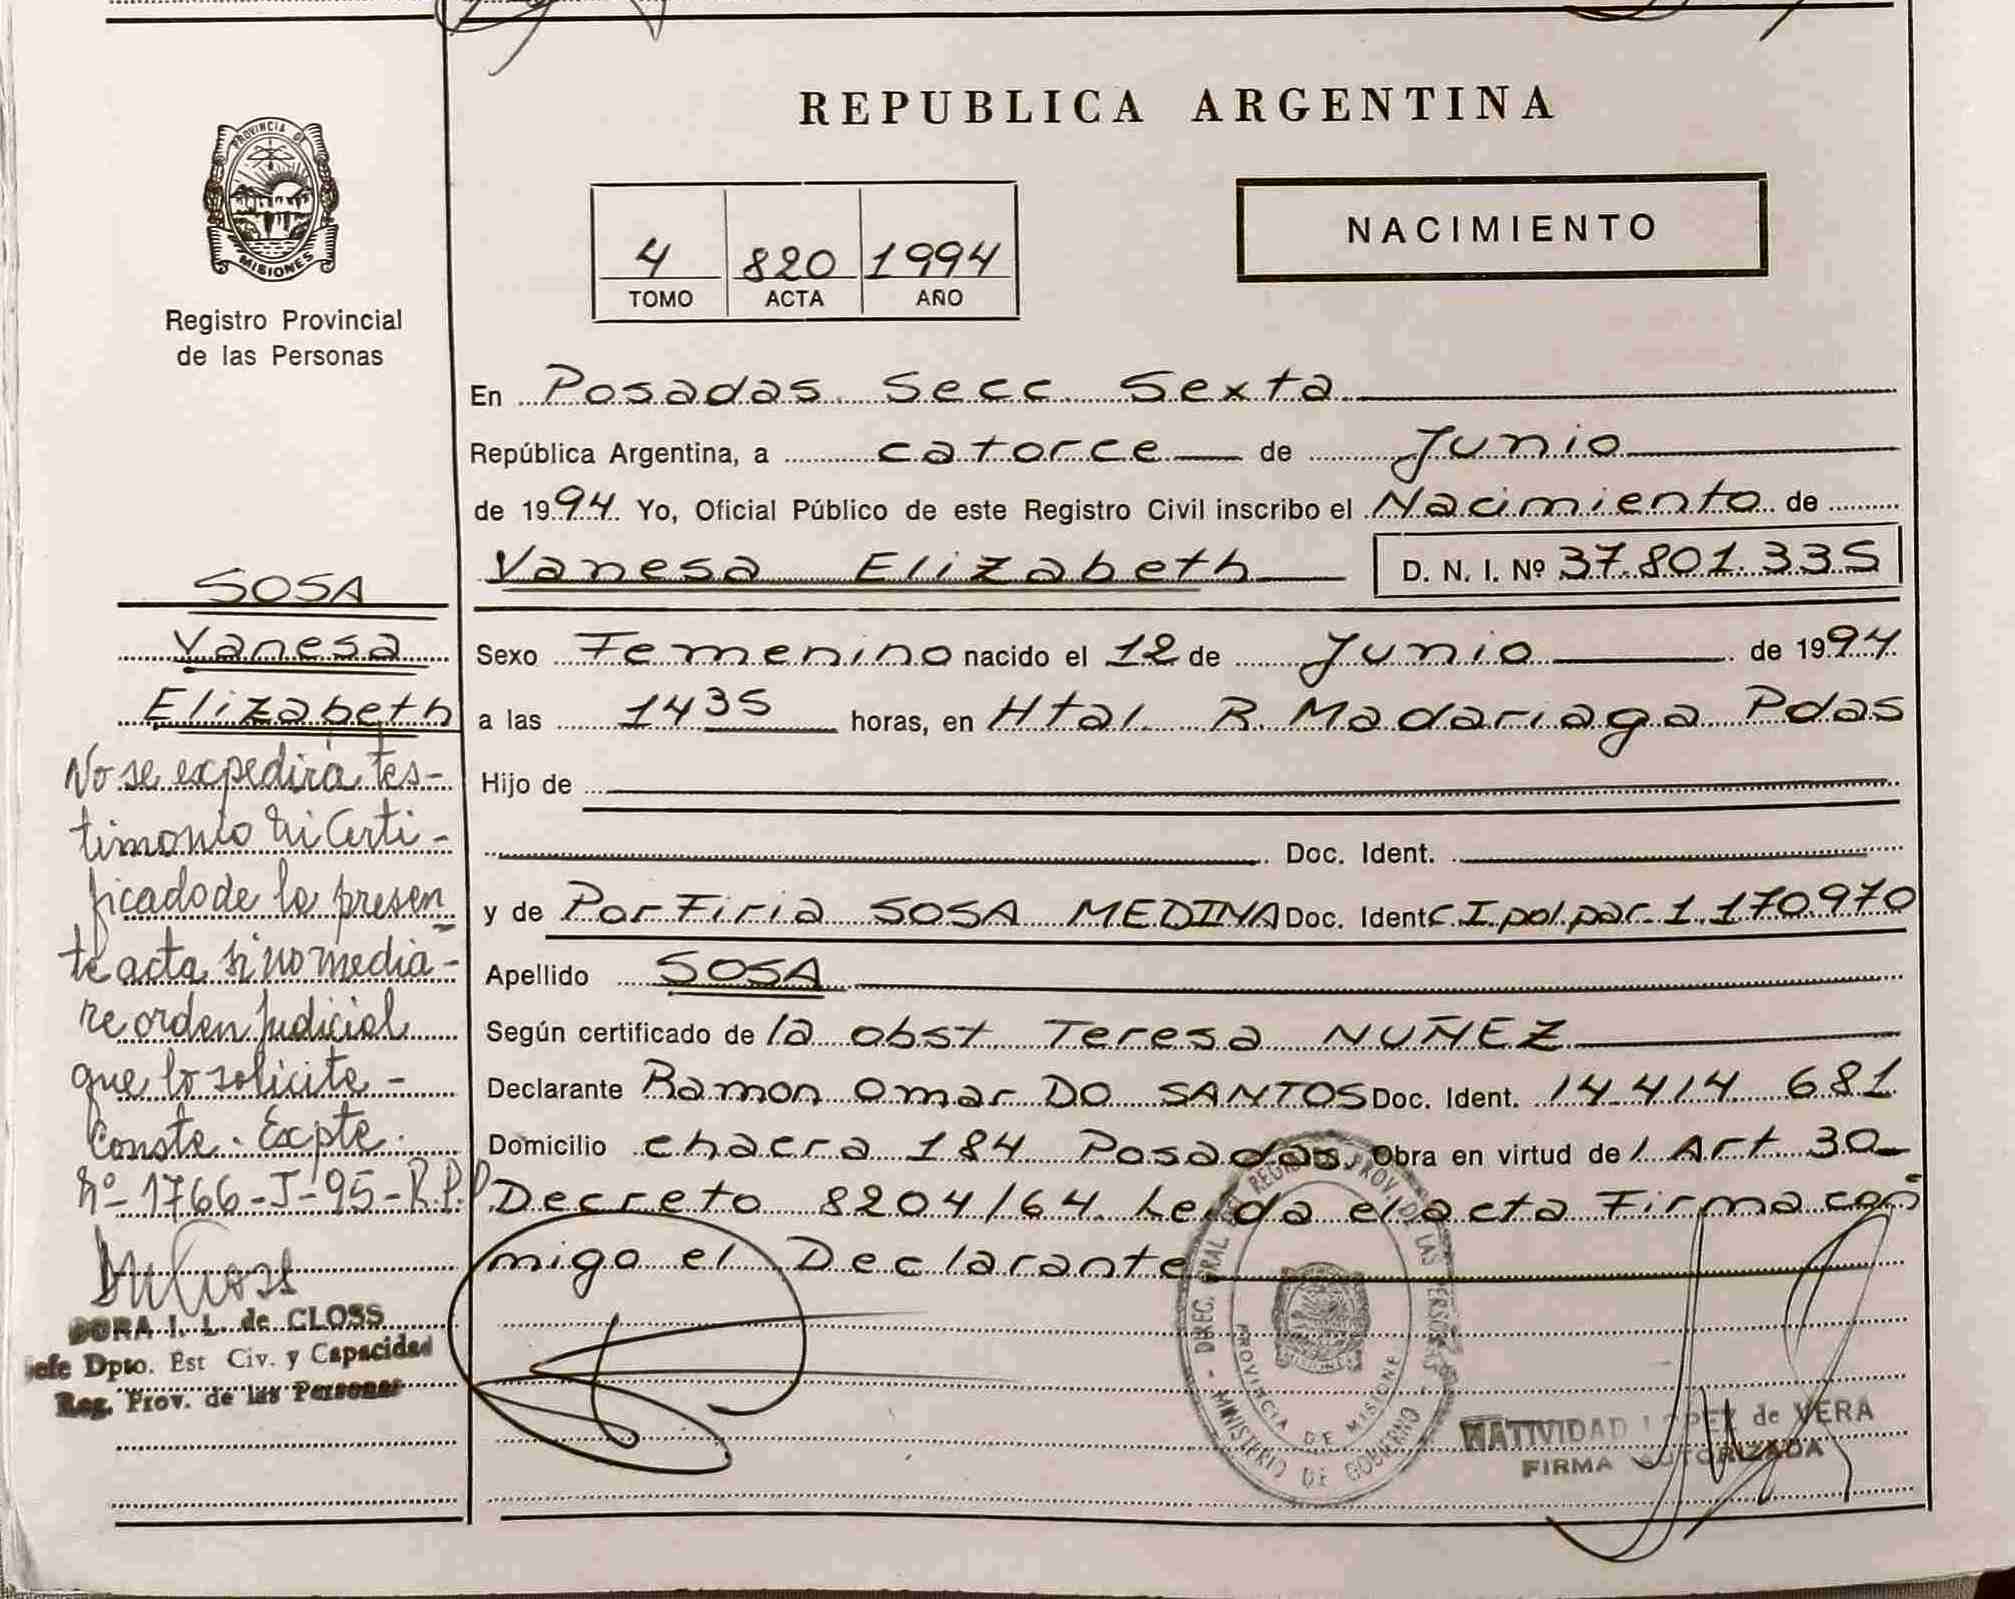 PROVINCIA DE
MISIONES
Registro Provincial
de las Personas
REPUBLICA ARGENTINA
4 820 1994
TOMO ACTA AÑO
NACIMIENTO
En Posadas Secc Sexta
República Argentina, a catorce de Junio
de 1994. Yo, Oficial Público de este Registro Civil inscribo el Nacimiento de
Vanesa Elizabeth D. N. I. Nº 37.801.335
Sexo Femenino nacido el 12 de Junio de 1994.
a las 1435 horas, en Htal. R. Madariaga Pdas
Hijo de
Doc. Ident.
y de Porfiria SOSA MEDINA Doc. Ident C I pol. par. 1.170.970
Apellido SOSA
Según certificado de la obst Teresa NUÑEZ
Declarante Ramon Omar DO SANTOS Doc. Ident. 14.414.681
Domicilio chacra 184 Posadas. Obra en virtud del Art 30
Decreto 8204/64. Leida el acta Firma con
migo el Declarante
SOSA
Vanesa
Elizabeth
No se expedirá tes-
timonio Ni Certi-
ficado de la presen
te acta si no media-
re orden judicial
que lo solicite -
Conste. Expte.
Nº 1766-J-95-R.P.P
DORA I. L. de CLOSS
Jefe Dpto. Est Civ. y Capacidad
Reg. Prov. de las Personas
DIREC. GRAL DEL REGISTRO PROV. DE LAS PERSONAS
PROVINCIA DE MISIONES
MINISTERIO DE GOBIERNO
NATIVIDAD LOPEZ de VERA
FIRMA AUTORIZADA